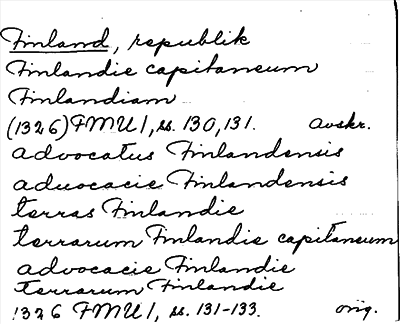 Finland, republik
Finlandie capitaneum
Finlandiam
(1326) FMU 1, ss. 130, 131. avskr.
advocatus Finlandensis
aduocacie Finlandensis
terras Finlandie
terrarum Finlandie capitaneum
advocacie Finlandie
terrarum Finlandie
1326 FMU 1, ss. 131-133. orig.